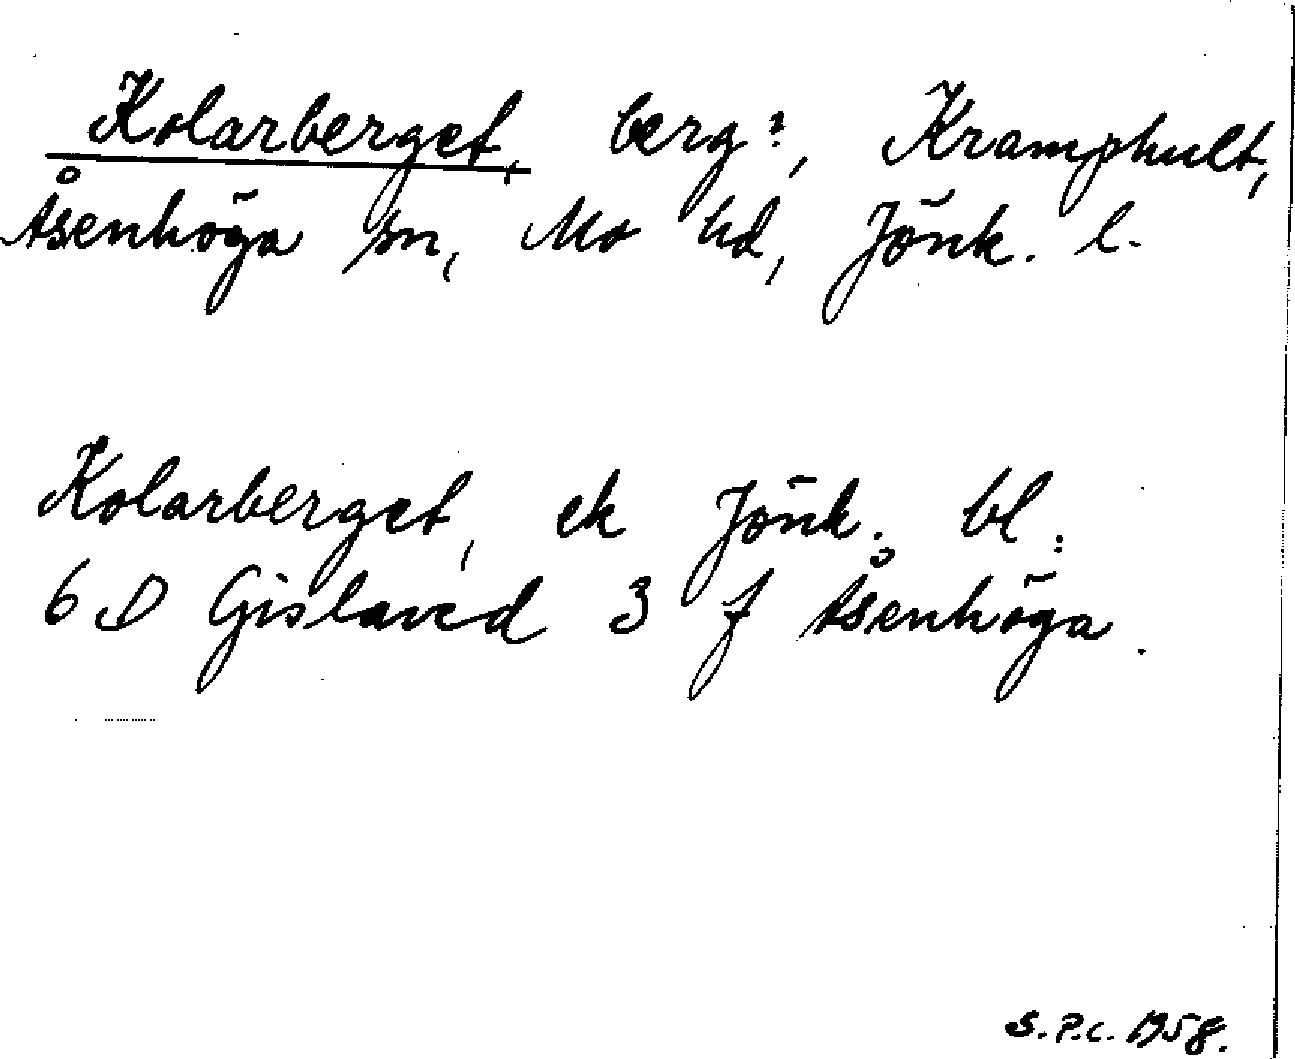 Kolarberget, berg?, Kramphult,
Åsenhöga sn, Mo hd, Jönk. l.
Kolarberget, ek Jönk. bl.:
6 D Gislaved 3 f Åsenhöga.
S.P.C. 1958.